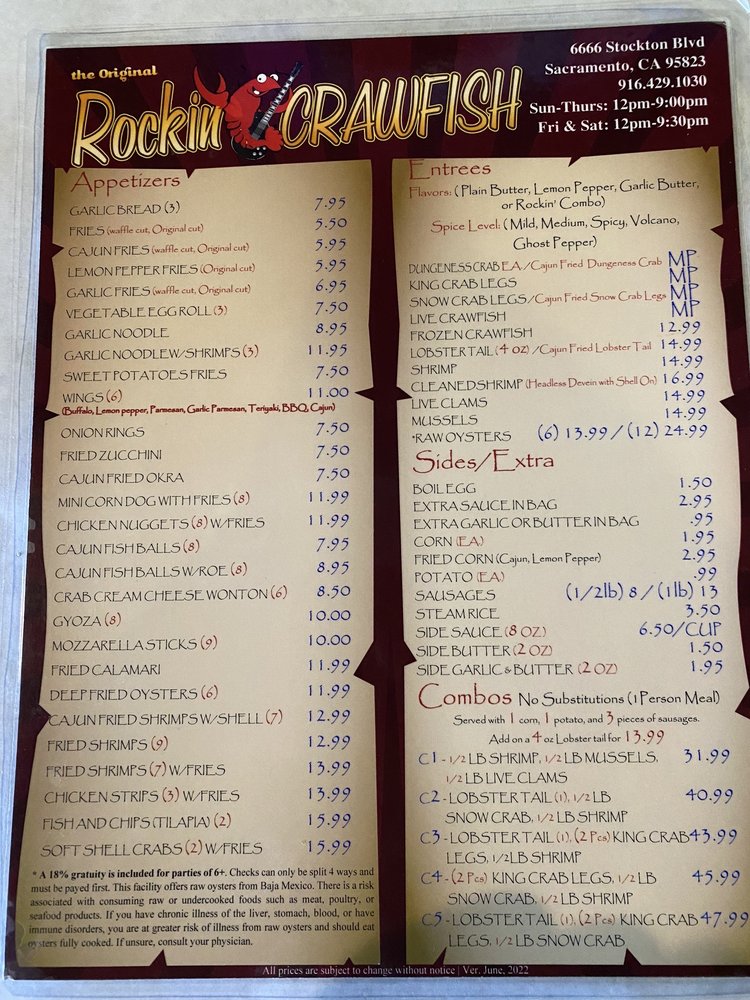 the Original
Rockin CRAWFISH
6666 Stockton Blvd
Sacramento, CA 95823
916.429.1030
Sun-Thurs: 12pm-9:00pm
Fri & Sat: 12pm-9:30pm
Appetizers
GARLIC BREAD (3) 7.95
FRIES (waffle cut, Original cut) 5.50
CAJUN FRIES (waffle cut, Original cut) 5.95
LEMON PEPPER FRIES (Original cut) 5.95
GARLIC FRIES (waffle cut, Original cut) 6.95
VEGETABLE EGG ROLL (3) 7.50
GARLIC NOODLE 8.95
GARLIC NOODLE W/SHRIMPS (3) 11.95
SWEET POTATOES FRIES 7.50
WINGS (6) 11.00
(Buffalo, Lemon pepper, Parmesan, Garlic Parmesan, Teriyaki, BBQ, Cajun)
ONION RINGS 7.50
FRIED ZUCCHINI 7.50
CAJUN FRIED OKRA 7.50
MINI CORN DOG WITH FRIES (8) 11.99
CHICKEN NUGGETS (8) W/FRIES 11.99
CAJUN FISH BALLS (8) 7.95
CAJUN FISH BALLS W/ROE (8) 8.95
CRAB CREAM CHEESE WONTON (6) 8.50
GYOZA (8) 10.00
MOZZARELLA STICKS (9) 10.00
FRIED CALAMARI 11.99
DEEP FRIED OYSTERS (6) 11.99
CAJUN FRIED SHRIMPS W/SHELL (7) 12.99
FRIED SHRIMPS (9) 12.99
FRIED SHRIMPS (7) W/FRIES 13.99
CHICKEN STRIPS (3) W/FRIES 13.99
FISH AND CHIPS (TILAPIA) (2) 15.99
SOFT SHELL CRABS (2) W/FRIES 15.99
* A 18% gratuity is included for parties of 6+. Checks can only be split 4 ways and
must be payed first. This facility offers raw oysters from Baja Mexico. There is a risk
associated with consuming raw or undercooked foods such as meat, poultry, or
seafood products. If you have chronic illness of the liver, stomach, blood, or have
immune disorders, you are at greater risk of illness from raw oysters and should eat
oysters fully cooked. If unsure, consult your physician.
Entrees
Flavors: (Plain Butter, Lemon Pepper, Garlic Butter,
or Rockin' Combo)
Spice Level: (Mild, Medium, Spicy, Volcano,
Ghost Pepper)
DUNGENESS CRAB EA/Cajun Fried Dungeness Crab MP
KING CRAB LEGS MP
SNOW CRAB LEGS/Cajun Fried Snow Crab Legs MP
LIVE CRAWFISH MP
FROZEN CRAWFISH 12.99
LOBSTER TAIL (4 OZ) /Cajun Fried Lobster Tail 14.99
SHRIMP 14.99
CLEANED SHRIMP (Headless Devein with Shell On) 16.99
LIVE CLAMS 14.99
MUSSELS 14.99
*RAW OYSTERS (6) 13.99 / (12) 24.99
Sides/Extra
BOIL EGG 1.50
EXTRA SAUCE IN BAG 2.95
EXTRA GARLIC OR BUTTER IN BAG .95
CORN (EA) 1.95
FRIED CORN (Cajun, Lemon Pepper) 2.95
POTATO (EA) .99
SAUSAGES (1/2lb) 8 / (1lb) 13
STEAM RICE 3.50
SIDE SAUCE (8 OZ) 6.50/CUP
SIDE BUTTER (2 OZ) 1.50
SIDE GARLIC & BUTTER (2 OZ) 1.95
Combos No Substitutions (1 Person Meal)
Served with 1 corn, 1 potato, and 3 pieces of sausages.
Add on a 4 oz Lobster tail for 13.99
C1 - 1/2 LB SHRIMP, 1/2 LB MUSSELS, 31.99
1/2 LB LIVE CLAMS
C2 - LOBSTER TAIL (1), 1/2 LB 40.99
SNOW CRAB, 1/2 LB SHRIMP
C3 - LOBSTER TAIL (1), (2 Pcs) KING CRAB 43.99
LEGS, 1/2 LB SHRIMP
C4 - (2 Pcs) KING CRAB LEGS, 1/2 LB 45.99
SNOW CRAB, 1/2 LB SHRIMP
C5 - LOBSTER TAIL (1), (2 Pcs) KING CRAB 47.99
LEGS, 1/2 LB SNOW CRAB
All prices are subject to change without notice | Ver. June, 2022